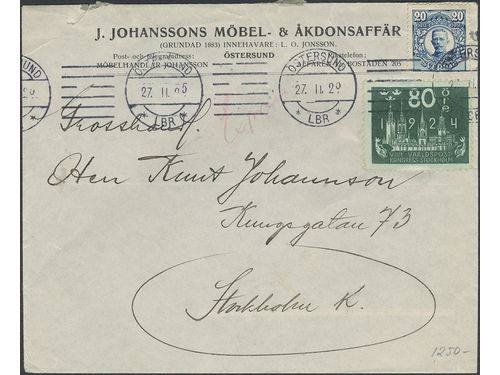 J. JOHANSSONS MÖBEL- & ÅKDONSAFFÄR
(GRUNDAD 1883) INNEHAVARE: L. O. JONSSON.
Post- och telegrafadress: ÖSTERSUND Rikstelefon:
MÖBELHANDLAR JOHANSSON AFFÄREN BOSTADEN 205
20 20
ÖSTERSUND
27. 11. 25
LBR
ÖSTERSUND
27. 11. 25
LBR
80 ÖRE
1924
VIII VÄRLDSPOST
KONGRESS STOCKHOLM
Grosshandl.
Herr Knut Johannson
Kungsgatan 73
Stockholm K.
1250-